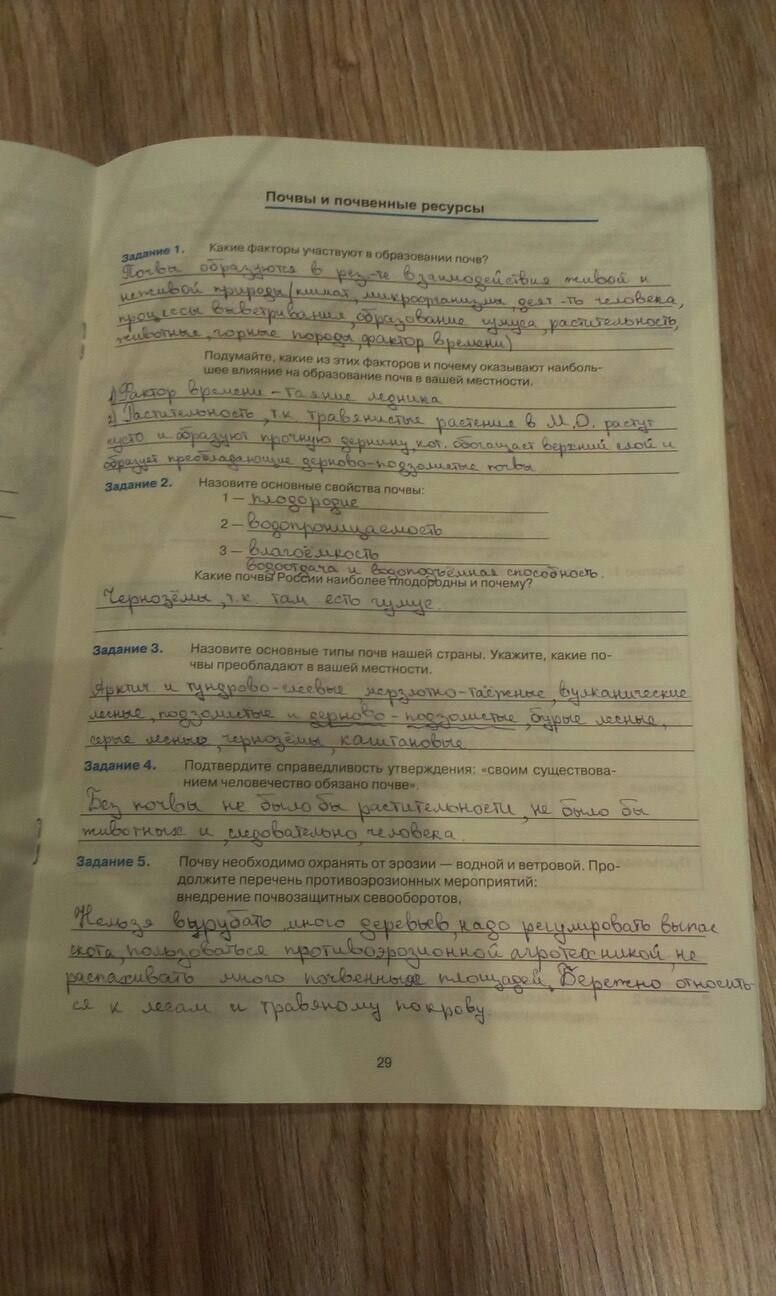 Почвы и почвенные ресурсы
Задание 1. Какие факторы участвуют в образовании почв?
Почвы образуются в рез-те взаимодействия живой и
неживой природы (климат, микроорганизмы, деят-ть человека,
процессы выветривания, образование гумуса, растительность,
животные, горные породы, фактор времени)
Подумайте, какие из этих факторов и почему оказывают наиболь-
шее влияние на образование почв в вашей местности.
1) Фактор времени - таяние ледника
2) Растительность, т.к. травянистые растения в М.О. растут
густо и образуют прочную дернину, кот. обогащает верхний слой и
образует преобладающие дерново-подзолистые почвы
Задание 2. Назовите основные свойства почвы:
1 — плодородие
2 — водопроницаемость
3 — влагоёмкость
водоотдача и водоподъёмная способность.
Какие почвы России наиболее плодородны и почему?
Чернозёмы, т.к. там есть гумус.
Задание 3. Назовите основные типы почв нашей страны. Укажите, какие по-
чвы преобладают в вашей местности.
Арктич. и тундрово-глеевые, мерзлотно-таёжные, вулканические
лесные, подзолистые и дерново-подзолистые, бурые лесные,
серые лесные, чернозёмы, каштановые
Задание 4. Подтвердите справедливость утверждения: «своим существова-
нием человечество обязано почве».
Без почвы не было бы растительности, не было бы
животных и, следовательно, человека.
Задание 5. Почву необходимо охранять от эрозии — водной и ветровой. Про-
должите перечень противоэрозионных мероприятий:
внедрение почвозащитных севооборотов,
Нельзя вырубать много деревьев, надо регулировать выпас
скота, пользоваться противоэрозионной агротехникой, не
распахивать много почвенных площадей. Бережно относить-
ся к лесам и травяному покрову.
29